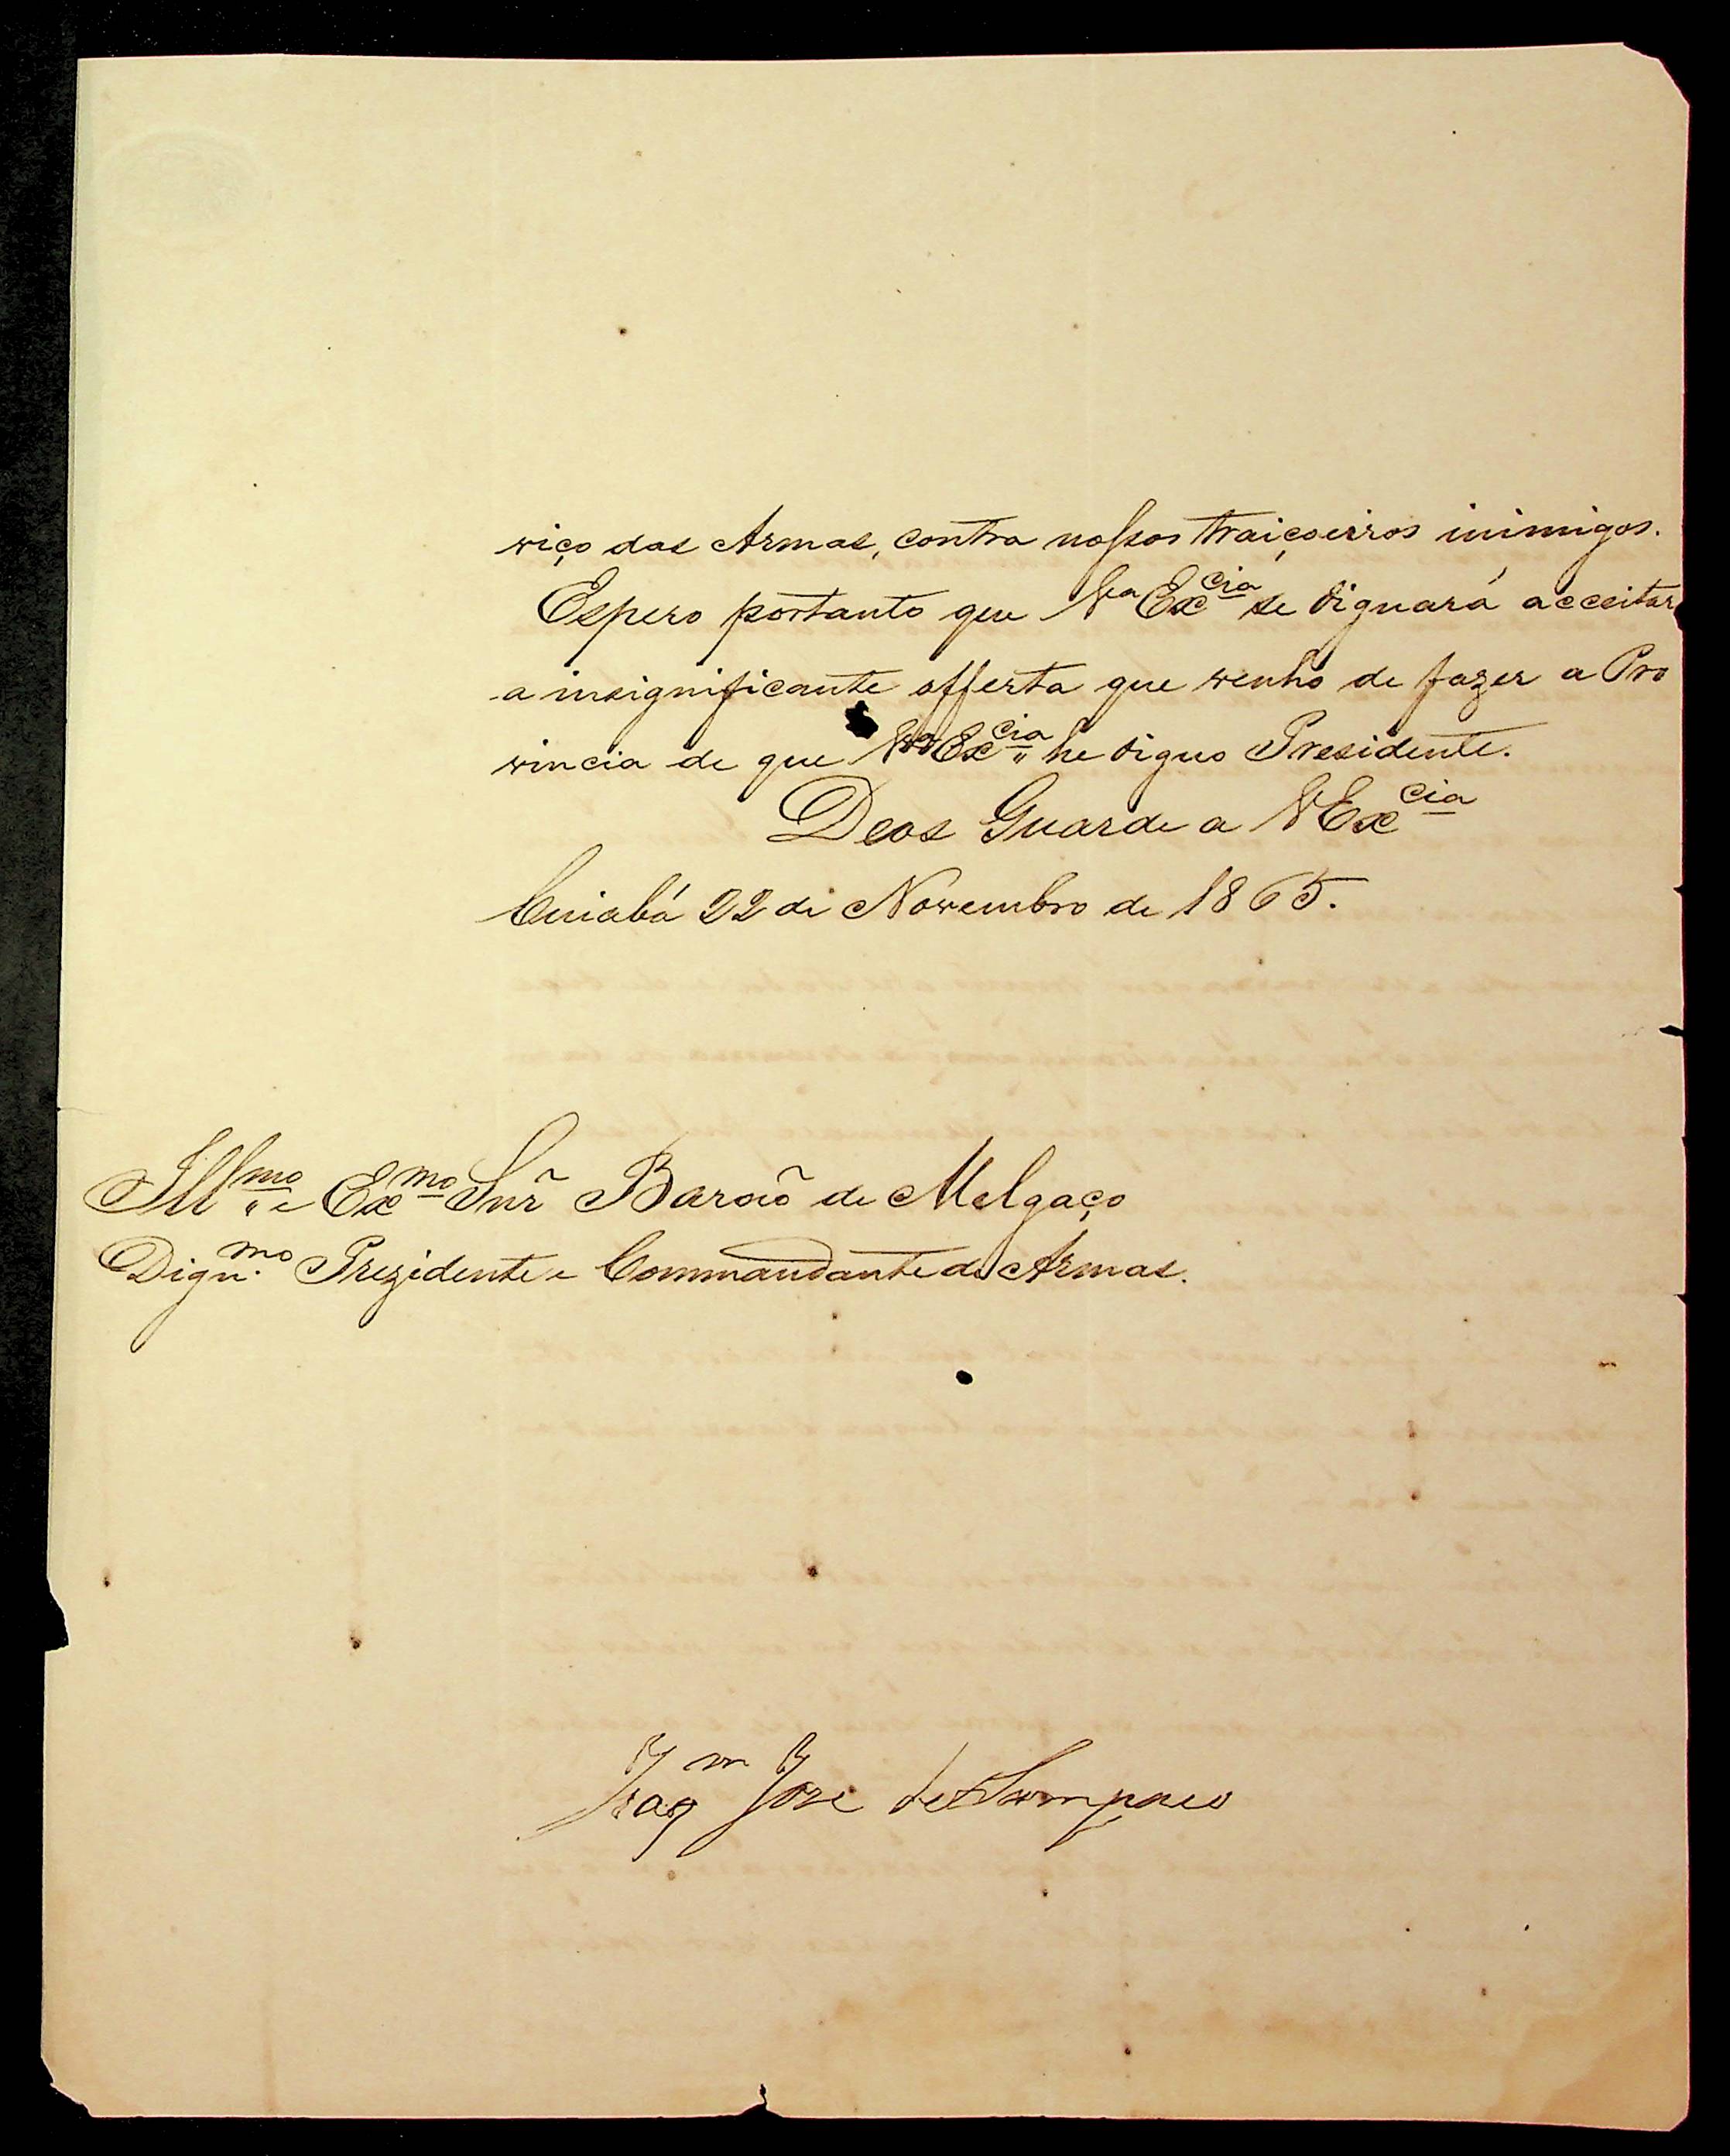 viço das Armas, contra nossos traiçoeiros inimigos.
Espero portanto que Vª Ex.cia se dignará acceitar
a insignificante offerta que venho de fazer a Pro
vincia de que Vª Ex.cia he digno Presidente.
Deos Guarde a V Ex.cia
Cuiabá 22 de Novembro de 1865.
Illmo e Exmo Snr̃ Baraõ de Melgaço
Dignmo Prezidente e Commandante de Armas.
Joaqm José de Sampaio